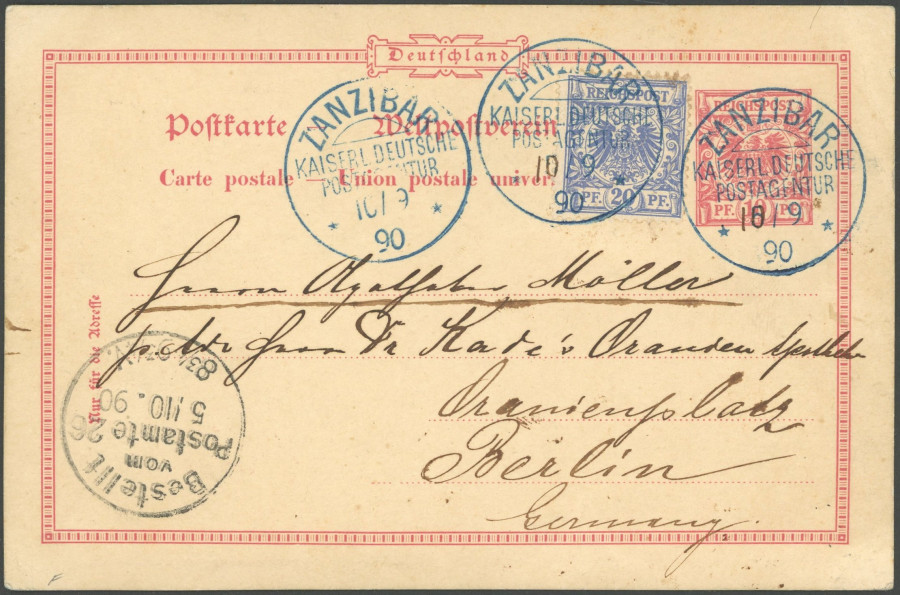 Deutschland
Postkarte — Weltpostverein
Carte postale — Union postale univer
ZANZIBAR
KAISERL. DEUTSCHE
POSTAGENTUR
10/9
90
ZANZIBAR
KAISERL. DEUTSCHE
POSTAGENTUR
10/9
90
REICHSPOST
PF. 20 PF.
ZANZIBAR
KAISERL. DEUTSCHE
POSTAGENTUR
10/9
90
REICHSPOST
PF. 10 PF.
Herrn Apotheker Möller
Herrn Dr Kade's Oranien Apotheke
Oranienplatz
Berlin
Germany.
Nur für die Adresse
Bestellt
vom
Postamte 26
5/10.90